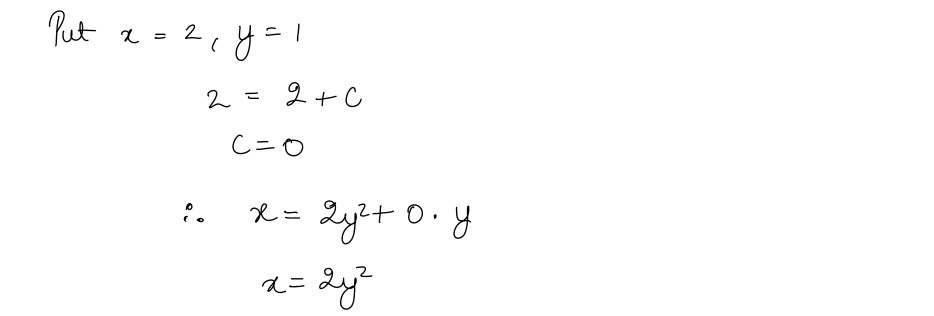 Put x = 2, y = 1
2 = 2 + C
C = 0
∴ x = 2y² + 0 · y
x = 2y²